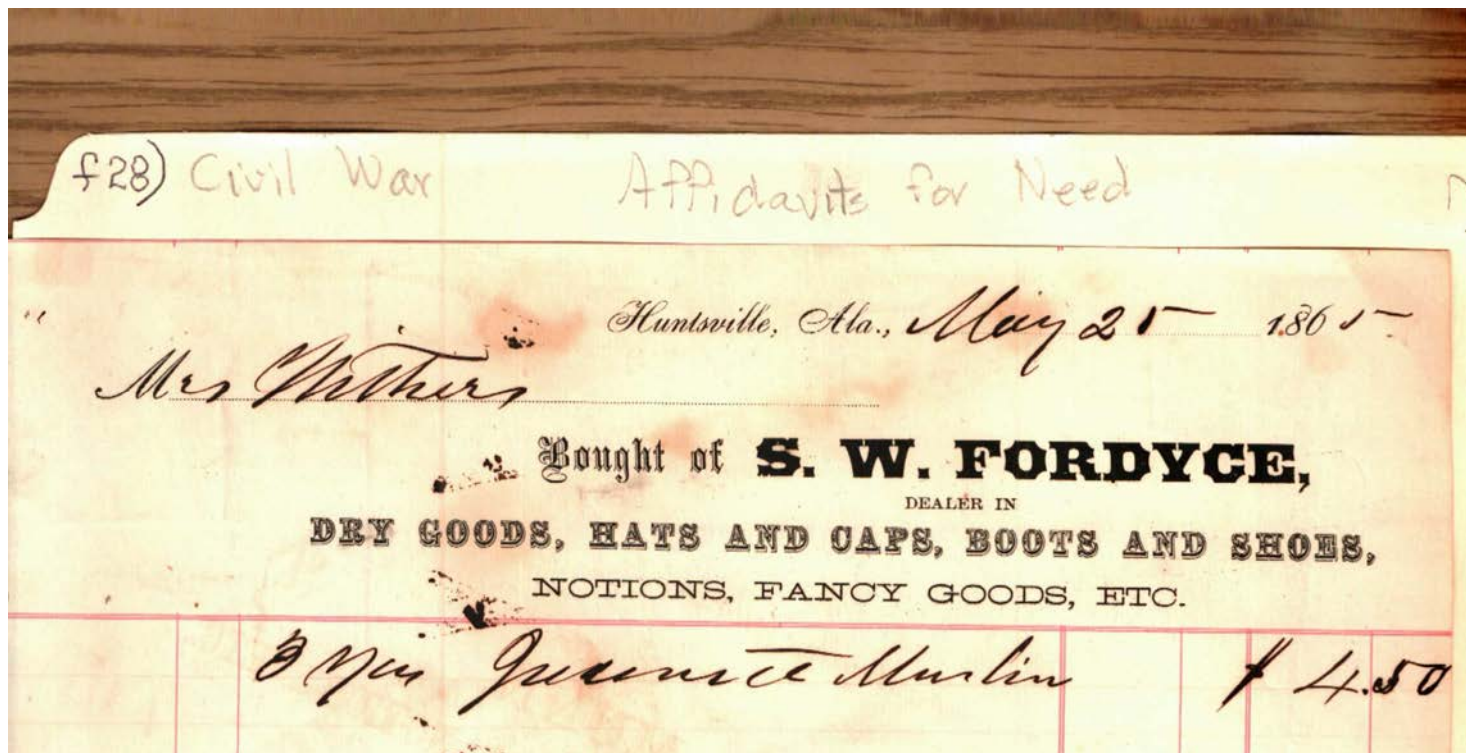 f28) Civil War Affidavits for Need
Huntsville, Ala., May 25 1865
Mrs Withers
Bought of S. W. FORDYCE,
DEALER IN
DRY GOODS, HATS AND CAPS, BOOTS AND SHOES,
NOTIONS, FANCY GOODS, ETC.
3 Muslin $ 4.50